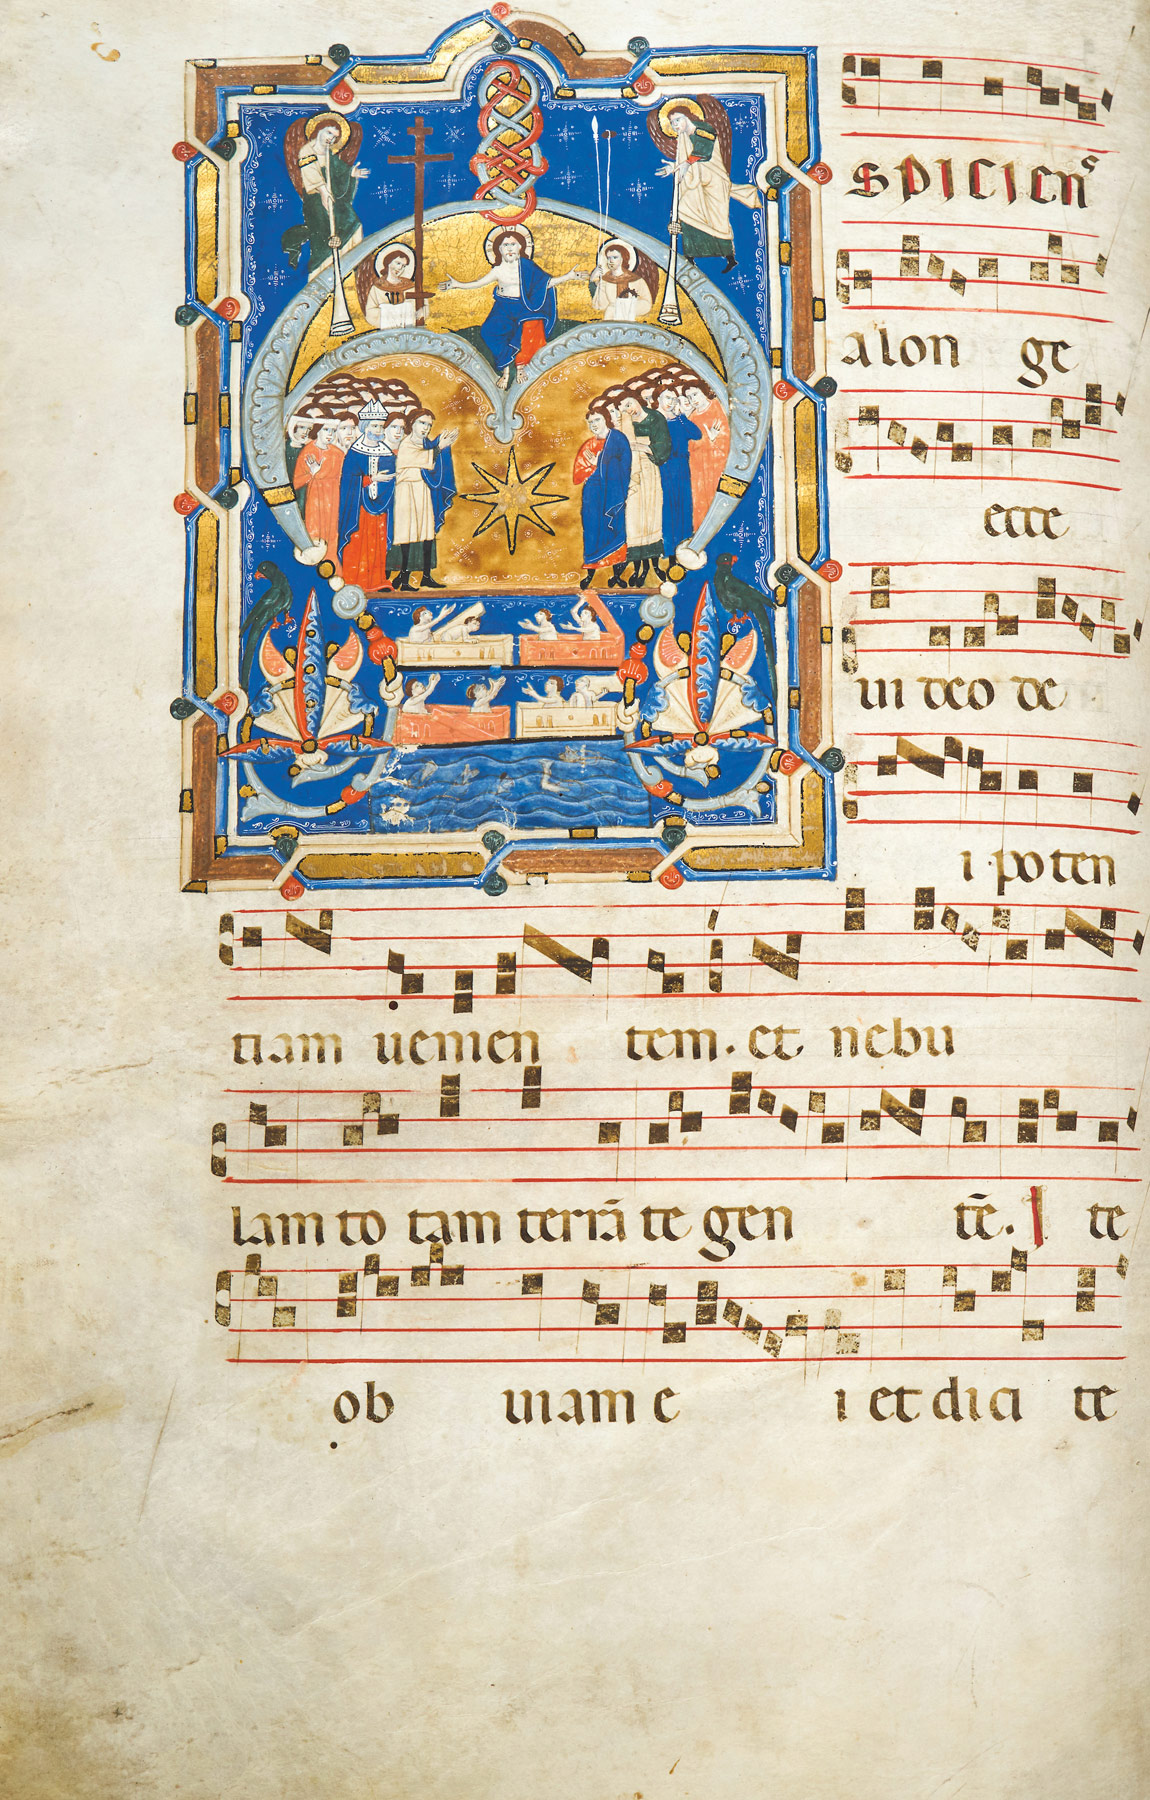 SPICIENS
a lon ge
ecce
ui deo de
i po ten
tiam uenien tem. et nebu
lam to tam terrā te gen tē. I te
ob uiam e i et dici te